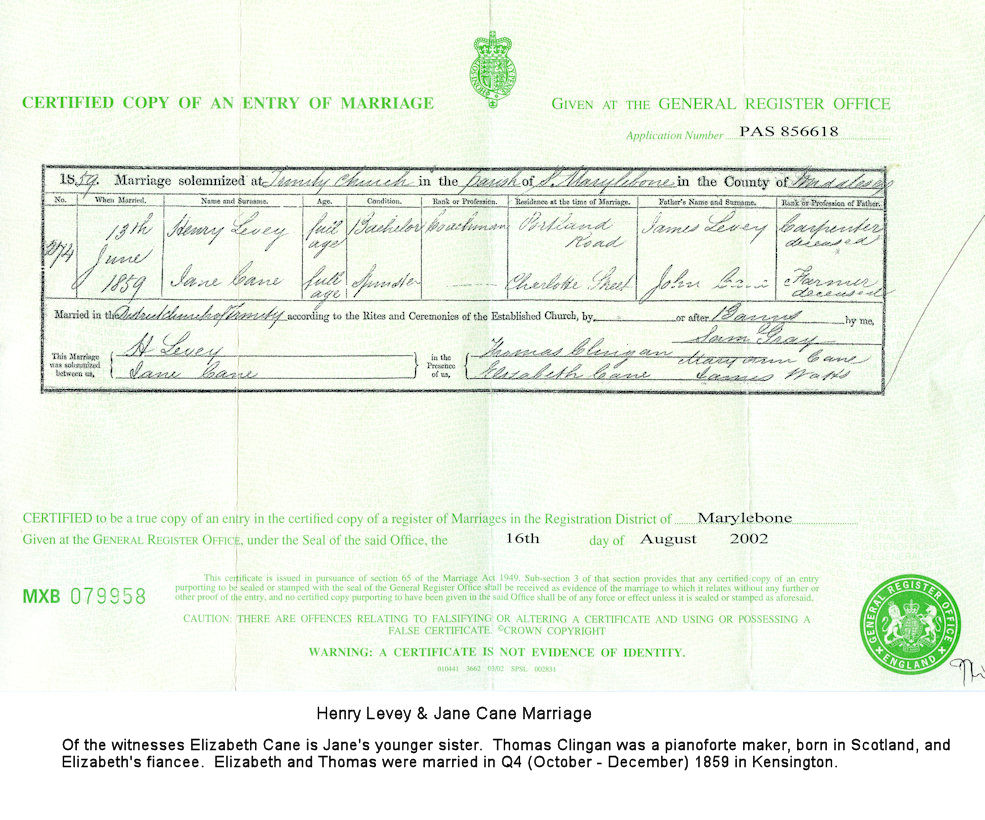 CERTIFIED COPY OF AN ENTRY OF MARRIAGE
GIVEN AT THE GENERAL REGISTER OFFICE
Application Number PAS 856618
1859. Marriage solemnized at Trinity Church in the parish of St. Marylebone in the County of Middlesex
No. When Married. Name and Surname. Age. Condition. Rank or Profession. Residence at the time of Marriage. Father's Name and Surname. Rank or Profession of Father.
274 13th June 1859 Henry Levey full age Bachelor Coachman Portland Road James Levey Carpenter deceased
Jane Cane full age Spinster Charlotte Street John Cane Farmer deceased
Married in the District Church of Trinity according to the Rites and Ceremonies of the Established Church, by or after Banns by me,
Sam Gray
This Marriage was solemnized between us, H Levey Jane Cane in the Presence of us, Thomas Clingan Elizabeth Cane Mary Ann Cane James Watts
CERTIFIED to be a true copy of an entry in the certified copy of a register of Marriages in the Registration District of Marylebone
Given at the GENERAL REGISTER OFFICE, under the Seal of the said Office, the 16th day of August 2002
MXB 079958
This certificate is issued in pursuance of section 65 of the Marriage Act 1949. Sub-section 3 of that section provides that any certified copy of an entry
purporting to be sealed or stamped with the seal of the General Register Office shall be received as evidence of the marriage to which it relates without any further or
other proof of the entry, and no certified copy purporting to have been given in the said Office shall be of any force or effect unless it is sealed or stamped as aforesaid.
CAUTION: THERE ARE OFFENCES RELATING TO FALSIFYING OR ALTERING A CERTIFICATE AND USING OR POSSESSING A
FALSE CERTIFICATE. ©CROWN COPYRIGHT
WARNING: A CERTIFICATE IS NOT EVIDENCE OF IDENTITY.
010441 3662 03/02 SPSL 002831
GENERAL REGISTER OFFICE
ENGLAND
Henry Levey & Jane Cane Marriage
Of the witnesses Elizabeth Cane is Jane's younger sister. Thomas Clingan was a pianoforte maker, born in Scotland, and
Elizabeth's fiancee. Elizabeth and Thomas were married in Q4 (October - December) 1859 in Kensington.